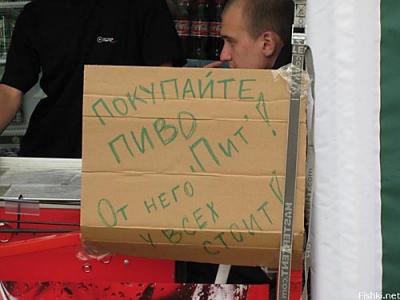 ПОКУПАЙТЕ
ПИВО „Пит“!
От НЕГО
У ВСЕХ
СТОИТ!
MASTERTENT.COM
Fishki.net